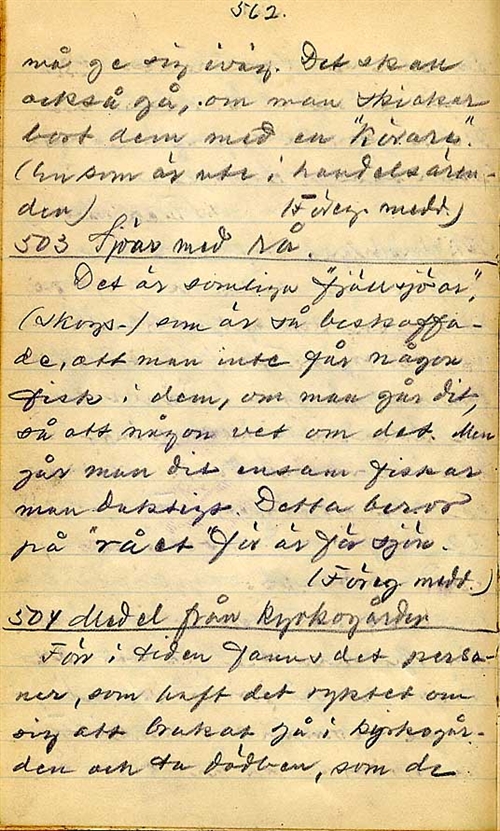 562.
må ge sig iväg. Det skall
också gå, om man skickar
bort dem med en "körare".
(En som är ute i handelsären-
den) (Föreg. medd.)
503 Sjöar med rå.
Det är somliga "fjällsjöar",
(skogs-) som är så beskaffa-
de, att man inte får någon
fisk i dem, om man går dit,
så att någon vet om det. Men
går man dit ensam fiskar
man duktigt. Detta beror
på "rået" för är för sjön.
(Föreg medd.)
504 Medel från kyrkogården
Förr i tiden fanns det perso-
ner, som haft det ryktet om
sig att brukat gå i kyrkogår-
den och ta dödben, som de